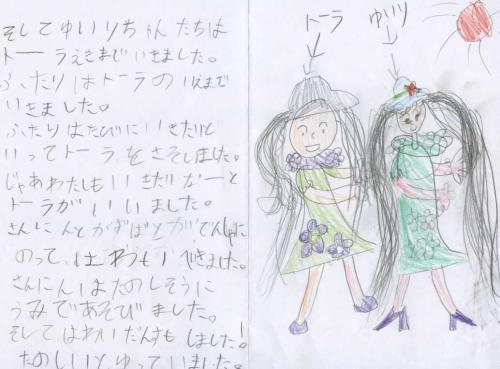 そしてゆいりちゃんたちは
トーラえきまでいきました。
ふたりはトーラのいえまで
いきました。
ふたりはたびにいきたいと
いってトーラをさそしました。
じゃあわたしもいきだなーと
トーラがいいました。
さんにんとかずばとがでんしゃに
のって、はわいいきました。
さんにんはたのしそうに
うみであそびました。
そしてはわいだんすもしました!
たのしいとゆっていました。
トーラ
ゆいり